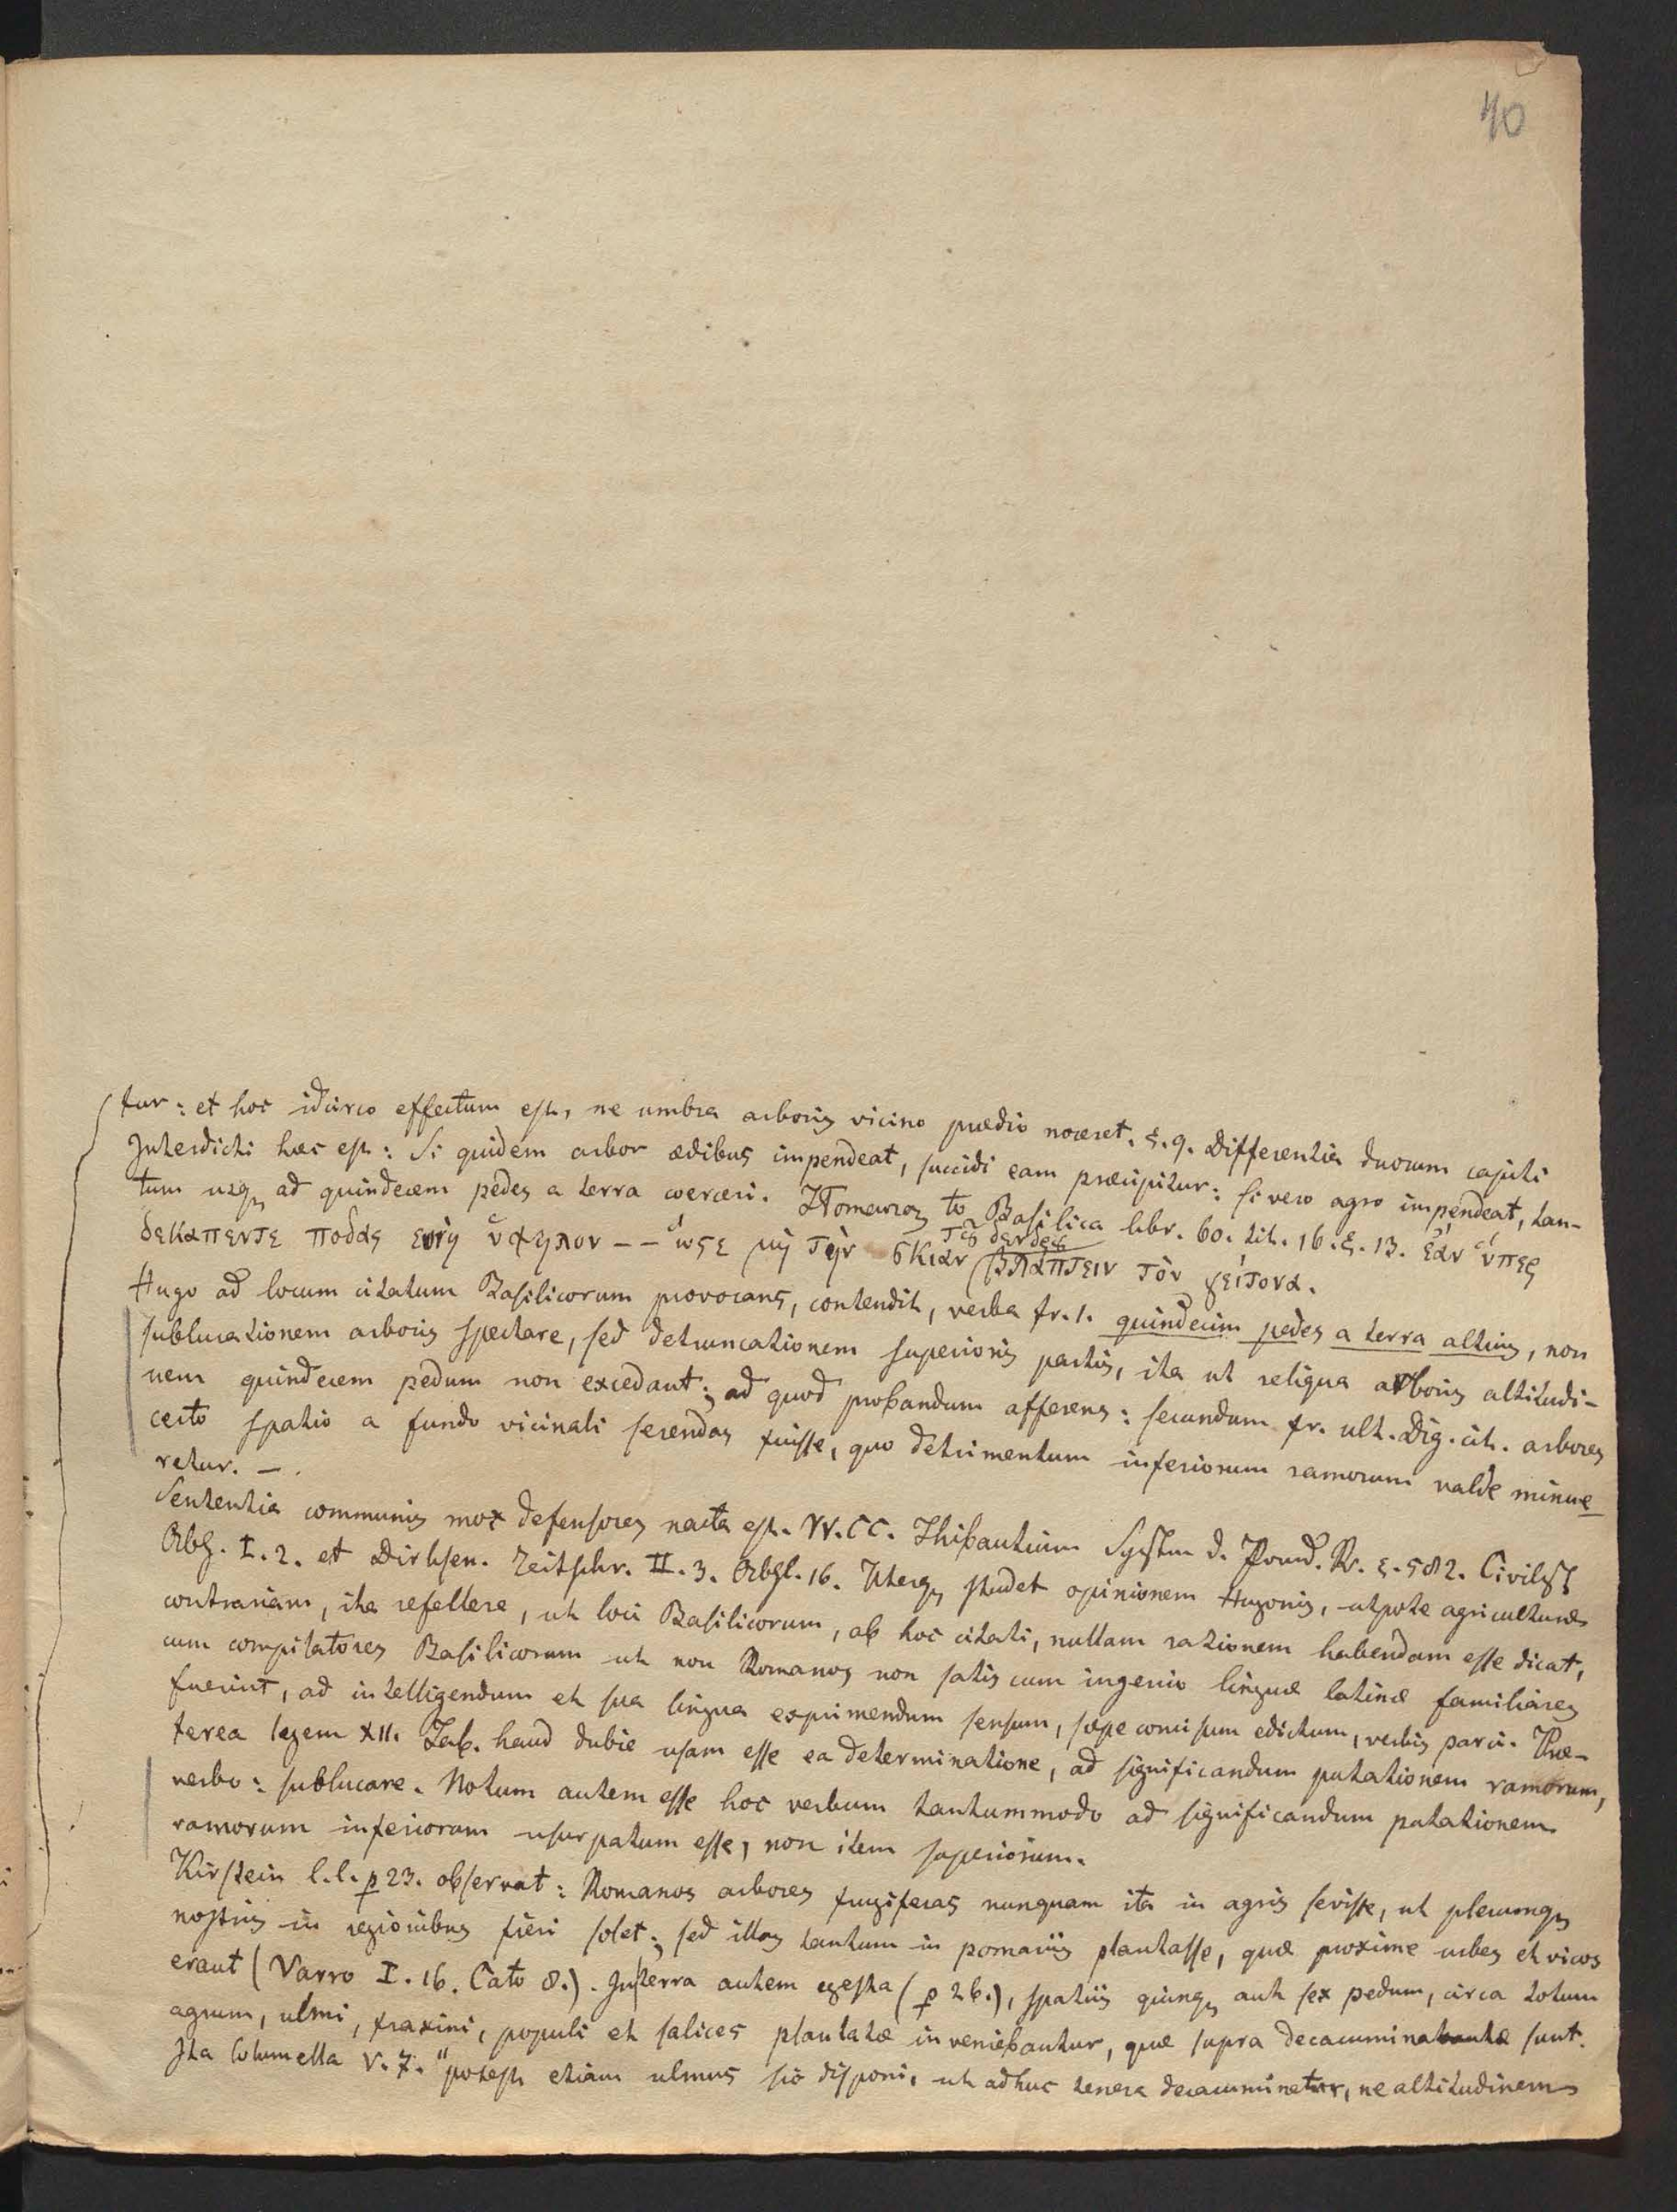 40
tur: et hoc idcirco effectum est, ne umbra arboris vicino prædio noceret. §. 9. Differentia duorum capiti
Interdicti hæc est: Si quidem arbor ædibus impendeat, succidi eam præcipitur: si vero agro impendeat, tan-
tum usq ad quindecem pedes a terra coerceri. to Basilica libr. 60. tit. 16. §. 13. ἐάν ὑπερ
δεκαπεντε ποδας ὑψηλον -- ὡςε μὴ τὴν σκιάν τȣ δενδρȣ βλαπτειν τὸν γείτονα.
Hugo ad locum citatum Basilicorum provocans, contendit, verba fr. 1. quindecim pedes a terra altius, non
sublucationem arboris spectare, sed detruncationem superioris partis, ita ut reliqua arboris altitudi-
nem quindecem pedum non excedant; ad quod probandum afferens: secundum fr. ult. Dig. cit. arbores
certo spatio a fundo vicinali serendas fuisse, quo detrimentum inferiorum ramorum valde minue
retur. —.
Sententia communis mox defensores nacta est. VV. CC. Thibautium System d. Pand. R. §. 582. Civilist
Abh. I. 2. et Dirksen. Zeitschr. II. 3. Abhl. 16. Uterq studet opinionem Hugonis, utpote agriculturæ
contrariam, ita refellere, ut loci Basilicorum, ab hoc citati, nullam rationem habendam esse dicat,
cum compilatores Basilicorum ut non Romanos non satis cum ingenio linguæ latinæ familiares
fuerint, ad intelligendum et sua lingua exprimendum sensum, sæpe concisum edictum, verbis parci. Præ-
terea legem XII. Tab. haud dubie usam esse ea determinatione, ad significandum putationem ramorum,
verbo: sublucare. Notum autem esse hoc verbum tantummodo ad significandum putationem
ramorum inferiorum usurpatum esse, non item superiorum.
Kirstein l. l. p 23. observat: Romanos arbores frugiferas nunquam ita in agris sevisse, ut plerumq
nostris in regionibus fieri solet; sed illas tantum in pomariis plantasse, quæ proxime urbes et vicos
erant (Varro I. 16. Cato 8.). In terra autem egesta (p 26.), spatiis quinq aut sex pedum, circa totum
agrum, ulmi, fraxini, populi et salices plantatæ inveniebantur, quæ supra decacuminatæ sunt.
Ita Columella V. 7. "potest etiam ulmus sic disponi, ut adhuc tenera decacuminetur, ne altitudinem